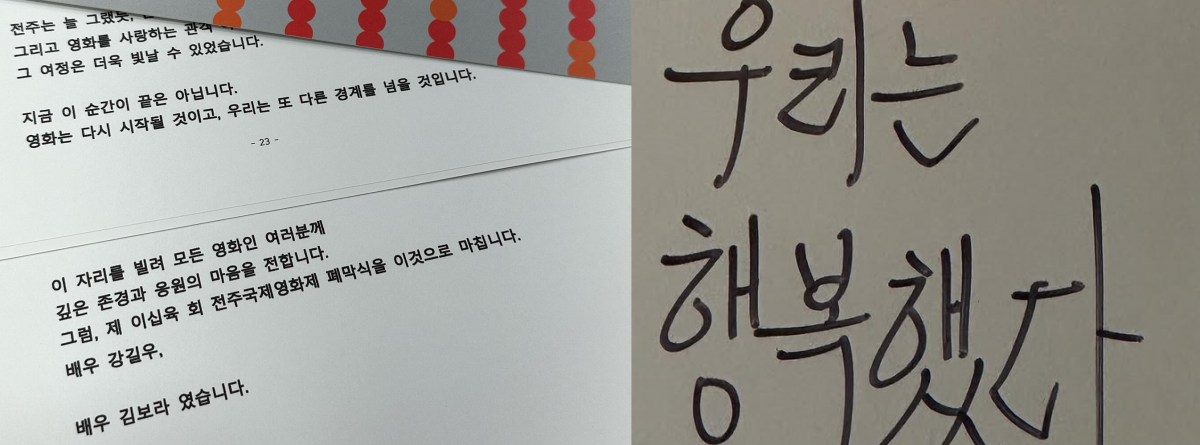 전주는 늘 그랬듯,
그리고 영화를 사랑하는 관객
그 여정은 더욱 빛날 수 있었습니다.
지금 이 순간이 끝은 아닙니다.
영화는 다시 시작될 것이고, 우리는 또 다른 경계를 넘을 것입니다.
- 23 -
이 자리를 빌려 모든 영화인 여러분께
깊은 존경과 응원의 마음을 전합니다.
그럼, 제 이십육 회 전주국제영화제 폐막식을 이것으로 마칩니다.
배우 강길우,
배우 김보라 였습니다.
우리는
행복했다